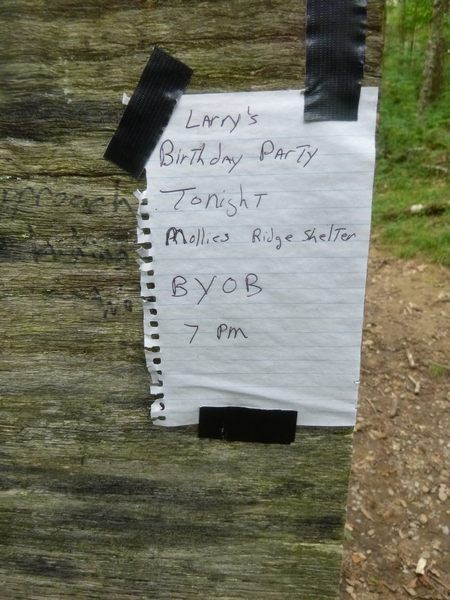 Larry's
Birthday Party
Tonight
Mollies Ridge Shelter
BYOB
7 pm